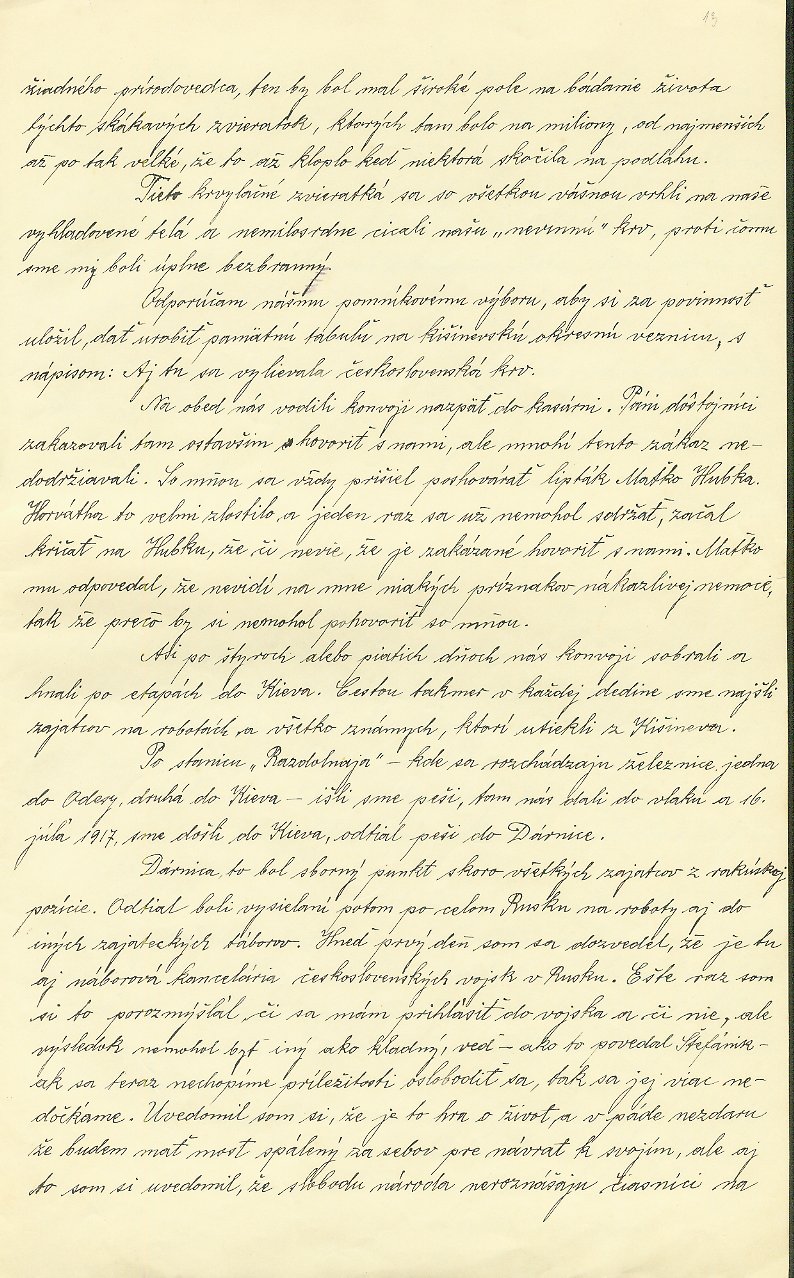 13
žiadného prírodovedca, ten by bol mal široké pole na bádanie života
týchto skákavých zvieratok, ktorých tam bolo na miliony, od najmenších
až po tak velké, že to až kloplo keď niektorá skočila na podlahu.
Tieto krvylačné zvieratká sa so všetkou vášnou vrhli na naše
vyhladovené telá a nemilosrdne cicali našu „nevinnú" krv, proti čomu
sme my boli úplne bezbranný.
Odporúčam nášmu pomníkovému výboru, aby si za povinnosť
uložil, dať urobiť pamätnú tabuľu na kišinevskú okresnú veznicu, s
nápisom: Aj tu sa vylievala československá krv.
Na obed nás vodili konvoji nazpäť do kasární. Páni dôstojníci
zakazovali tam ostavším hovoriť s nami, ale mnohí tento zákaz ne-
dodržiavali. So mňou sa vždy prišiel poshovárať lipták Maťko Hubka.
Horvátha to velmi zlostilo, a jeden raz sa už nemohol sdržať, začal
kričať na Hubku, že či nevie, že je zakázané hovoriť s nami. Maťko
mu odpovedal, že nevidí na mne niakých príznakov nákazlivej nemoce,
tak že prečo by si nemohol pohovoriť so mňou.
Asi po štyroch alebo piatich dňoch nás konvoji sobrali a
hnali po etapách do Kieva. Cestou takmer v každej dedine sme najšli
zajatcov na robotách, a všetko známych, ktorí utiekli z Kišineva.
Po stanicu „Razdolnaja" – kde sa rozchádzaju železnice, jedna
do Odesy, druhá do Kieva – išli sme peši, tam nás dali do vlaku a 16.
júla 1917, sme došli do Kieva, odtial peši do Dárnice.
Dárnica, to bol sborný punkt skoro všetkých zajatcov z rakúskej
pozície. Odtial boli vysielaní potom po celom Rusku na roboty aj do
iných zajateckých táborov. Hneď prvý deň som sa dozvedel, že je tu
aj náborová kancelária československých vojsk v Rusku. Ešte raz som
si to porozmýšlal, či sa mám prihlásiť do vojska a či nie, ale
výsledok nemohol byť iný ako kladný, veď – ako to povedal Štefánik –
ak sa teraz nechopíme príležitosti oslobodiť sa, tak sa jej viac ne-
dočkáme. Uvedomil som si, že je to hra o život, a v páde nezdaru
že budem mať most spálený za sebov pre návrat k svojím, ale aj
to som si uvedomil, že slobodu národa neroznášaju čiasníci na